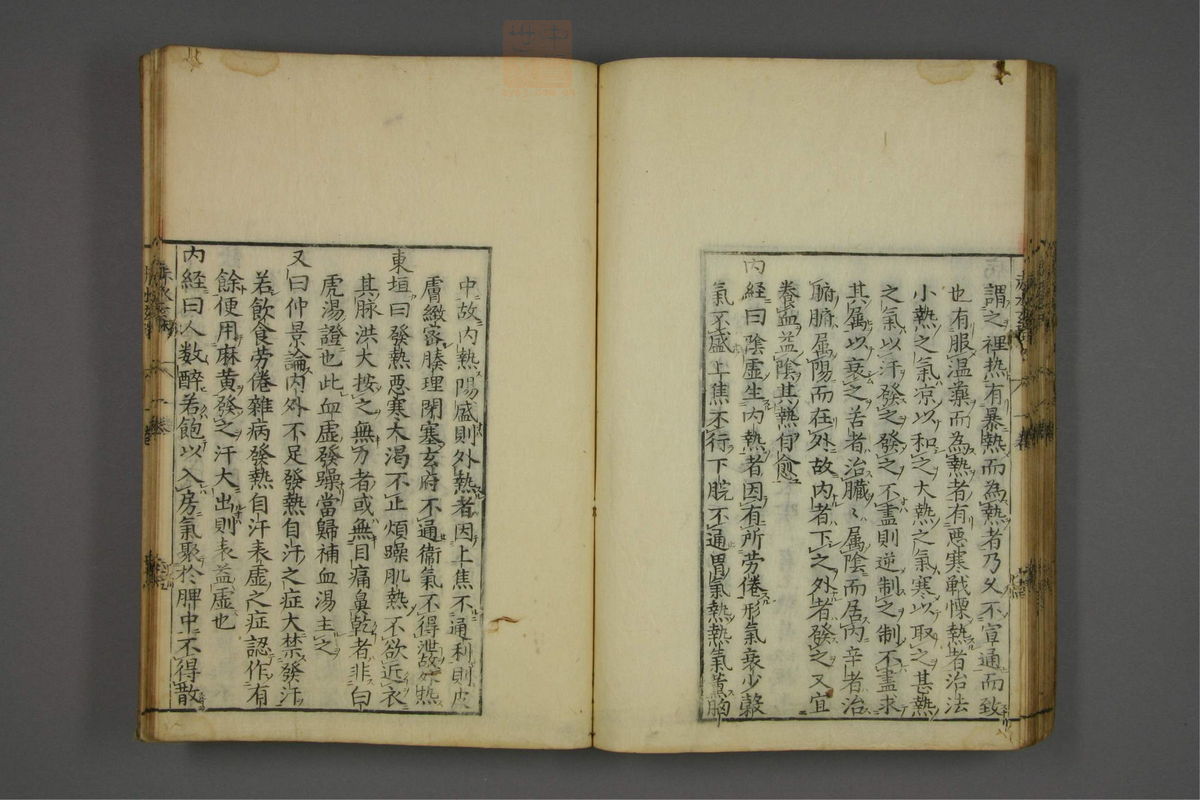 謂之裡热有暴熱而為熱者乃久不宣通而致
也有服温藥而為熱者有悪寒戦慄熱者治法
小熱之氣凉以和之大熱之氣寒以取之甚熱
之氣以汗發之發之不盡則逆制之制不盡求
其属以衰之苦者治臓〻属陰而居内辛者治
腑腑属陽而在外故内者下之外者發之又宜
養血益陰其熱自愈
内経曰陰虚生内熱者因有所労倦形氣衰少穀
氣不盛上焦不行下脘不通胃氣熱熱氣薫胸
中故内熱陽盛則外熱者因上焦不通利則皮
膚緻密腠理閉塞玄府不通衞氣不得泄故外熱
東垣曰發熱悪寒大渇不止煩躁肌熱不欲近衣
其脉洪大按之無力者或無目痛鼻乾者非白
虎湯證也此血虚發躁當歸補血湯主之
又曰仲景論内外不足發熱自汗之症大禁發汗
若飲食労倦雜病發熱自汗表虚之症認作有
餘便用麻黄發之汗大出則表益虚也
内経曰人数醉若飽以入房氣聚於脾中不得散